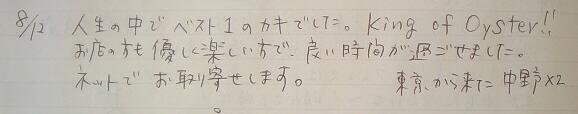 8/12 人生の中でベスト1のカキでした。King of Oyster!!
お店の方も優しく楽しい方で、良い時間が過ごせました。
ネットでお取り寄せします。 東京から来た中野×2